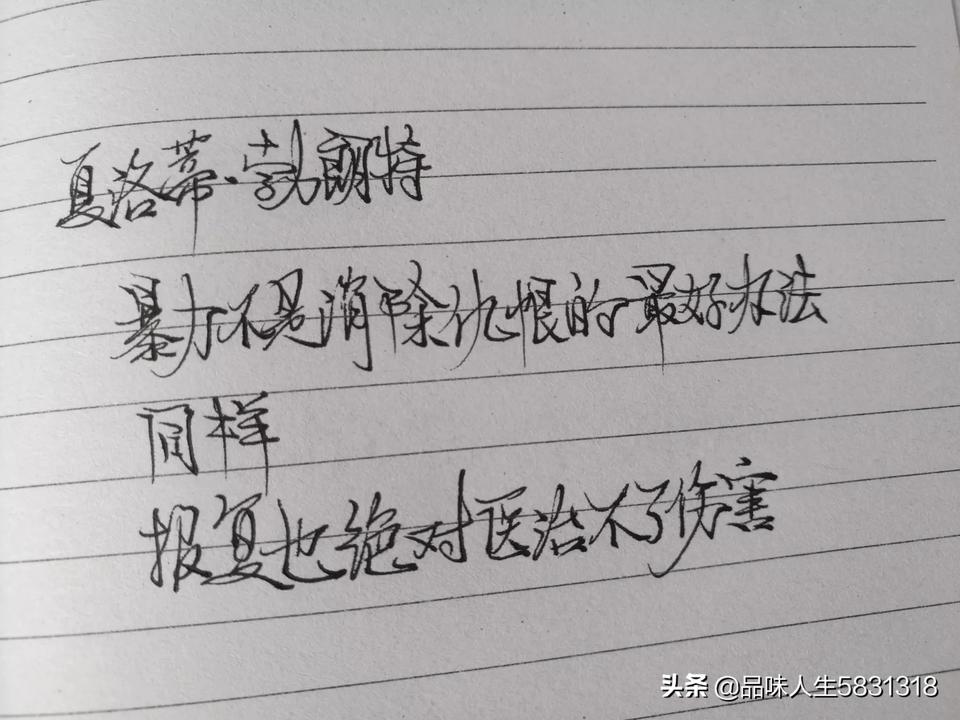 夏洛蒂·勃朗特
暴力不是消除仇恨的最好办法
同样
报复也绝对医治不了伤害
头条 @品味人生5831318